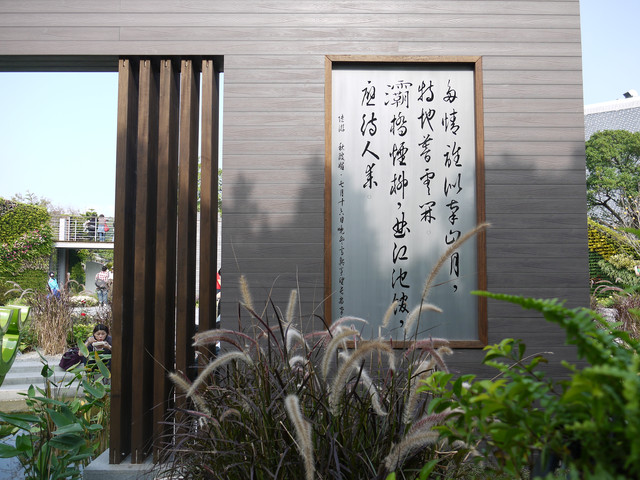 多情誰似南山月,
特地暮雲開
灞橋煙柳,曲江池館,
應待人來
陸游 秋波媚·七月十六日晚登高興亭望長安南